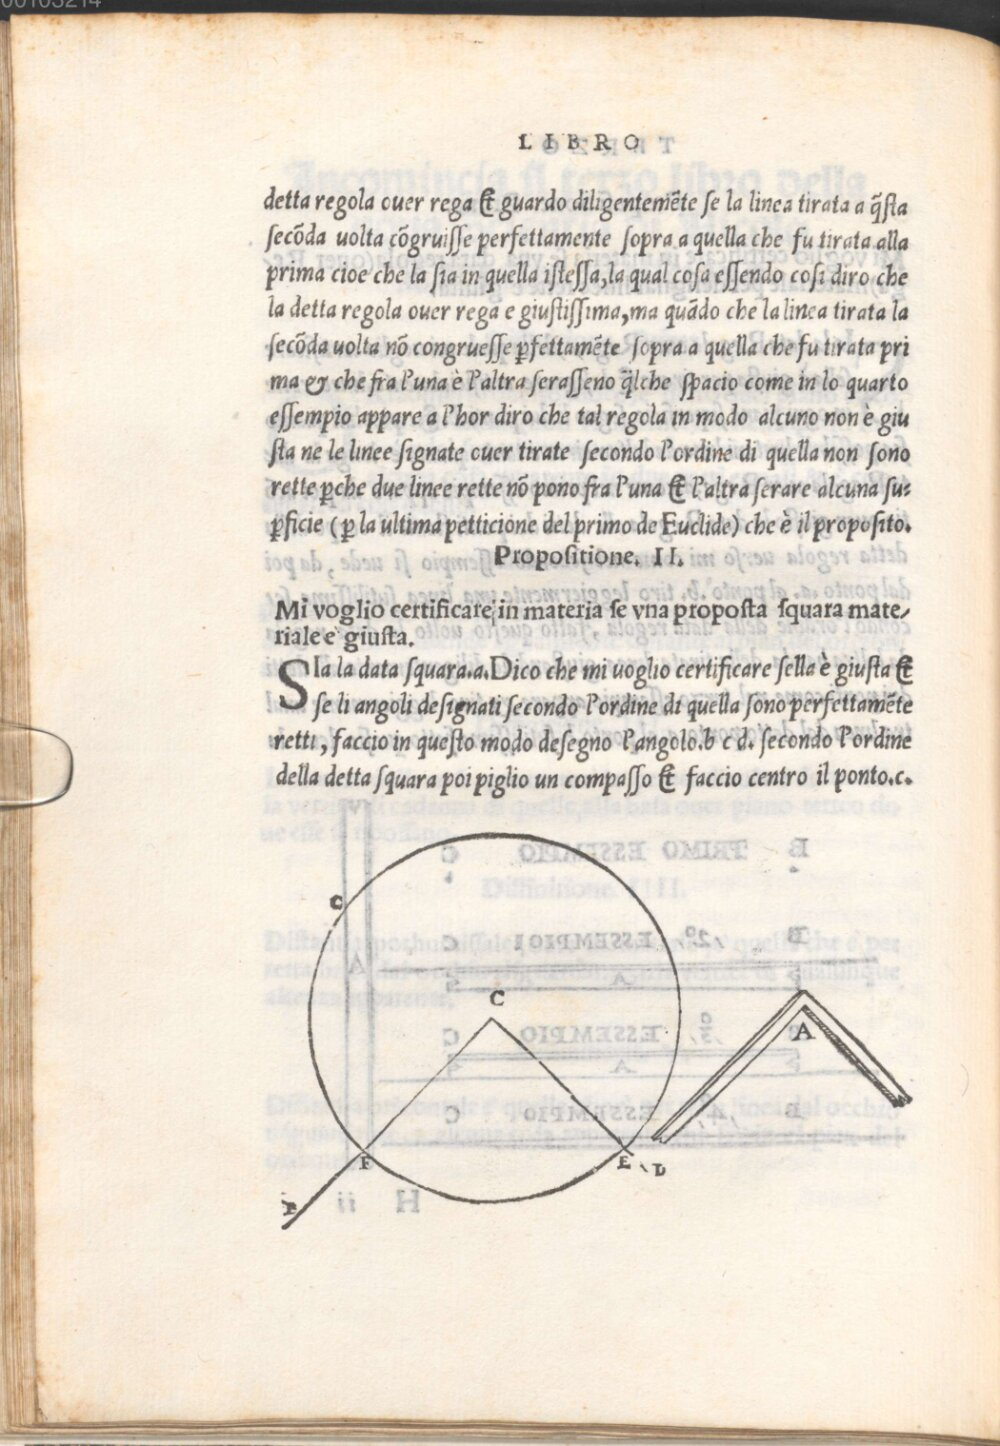 00103214
LIBRO
detta regola ouer rega & guardo diligentemẽte se la linea tirata a q̃sta
secõda uolta cõgruisse perfettamente sopra a quella che fu tirata alla
prima cioe che la sia in quella istessa, la qual cosa essendo cosi diro che
la detta regola ouer rega e giustissima, ma quãdo che la linea tirata la
secõda uolta nõ congruesse ꝑfettamẽte sopra a quella che fu tirata pri
ma & che fra l'una è l'altra serasseno q̃lche spacio come in lo quarto
essempio appare a l'hor diro che tal regola in modo alcuno non è giu
sta ne le linee signate ouer tirate secondo l'ordine di quella non sono
rette ꝑche due linee rette nõ pono fra l'una & l'altra serare alcuna su=
ꝑficie (ꝑ la ultima petticione del primo de Euclide) che è il proposito.
Propositione. II.
Mi voglio certificare in materia se vna proposta squara mate/
riale e giusta.
SIa la data squara.a. Dico che mi uoglio certificare sella è giusta &
se li angoli designati secondo l'ordine di quella sono perfettamẽte
retti, faccio in questo modo desegno l'angolo.b c d. secondo l'ordine
della detta squara poi piglio un compasso & faccio centro il ponto.c.
G
C
A
F
E
D